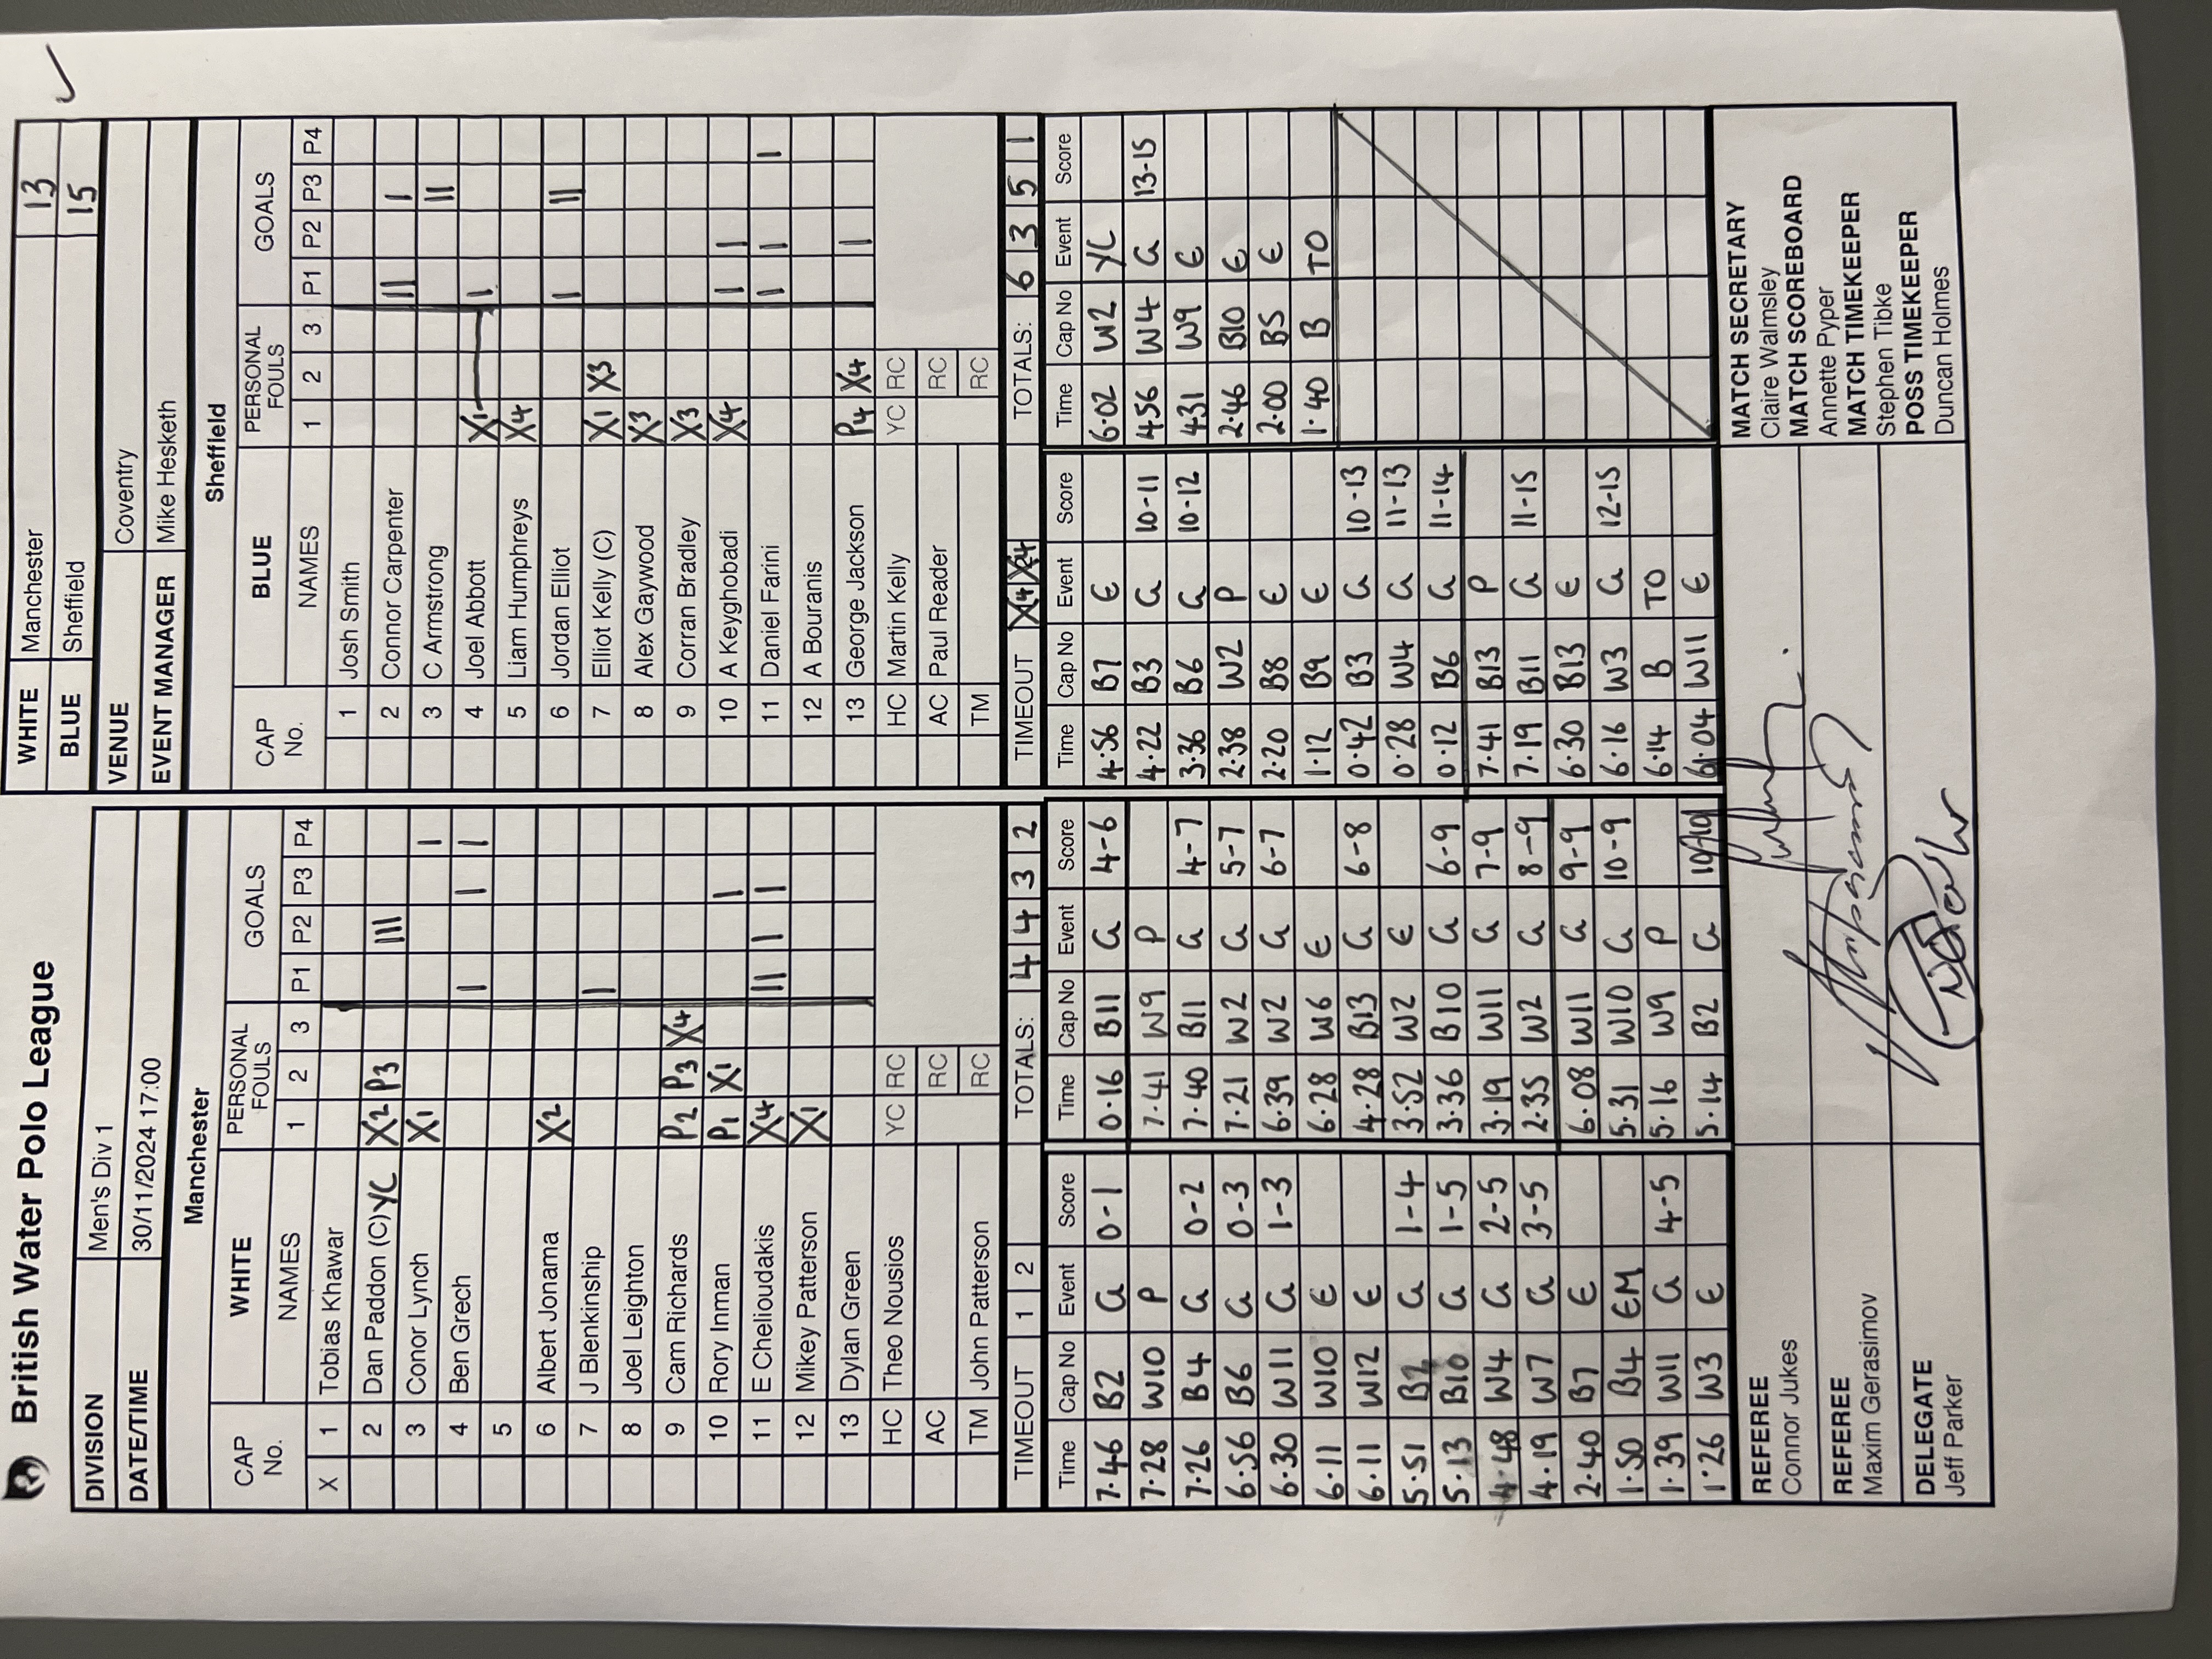 British Water Polo League
DIVISION Men's Div 1
DATE/TIME 30/11/2024 17:00
WHITE Manchester 13
BLUE Sheffield 15
VENUE Coventry
EVENT MANAGER Mike Hesketh
Manchester
CAP No. WHITE NAMES PERSONAL FOULS 1 2 3 GOALS P1 P2 P3 P4
X 1 Tobias Khawar
2 Dan Paddon (C) YC X2 P3 III
3 Conor Lynch X1 I
4 Ben Grech I I I
5
6 Albert Jonama X2
7 J Blenkinship I
8 Joel Leighton
9 Cam Richards P2 P3 X4
10 Rory Inman P1 X1 I
11 E Chelioudakis X4 II I I
12 Mikey Patterson X1
13 Dylan Green
HC Theo Nousios YC RC
AC RC
TM John Patterson RC
TIMEOUT 1 2 TOTALS: 4 4 3 2
Sheffield
CAP No. BLUE NAMES PERSONAL FOULS 1 2 3 GOALS P1 P2 P3 P4
1 Josh Smith
2 Connor Carpenter II I
3 C Armstrong II
4 Joel Abbott X1 I
5 Liam Humphreys X4
6 Jordan Elliot I II
7 Elliot Kelly (C) X1 X3
8 Alex Gaywood X3
9 Corran Bradley X3
10 A Keyghobadi X4 I I
11 Daniel Farini I I I
12 A Bouranis
13 George Jackson P4 X4 I
HC Martin Kelly YC RC
AC Paul Reader RC
TM RC
TIMEOUT X4 X4 TOTALS: 6 3 5 1
Time Cap No Event Score
7.46 B2 G 0-1
7.28 W10 P
7.26 B4 G 0-2
6.56 B6 G 0-3
6.30 W11 G 1-3
6.11 W10 E
6.11 W12 E
5.51 B2 G 1-4
5.13 B10 G 1-5
4.48 W4 G 2-5
4.19 W7 G 3-5
2.40 B7 E
1.50 B4 EM
1.39 W11 G 4-5
1.26 W3 E
Time Cap No Event Score
0.16 B11 G 4-6
7.41 W9 P
7.40 B11 G 4-7
7.21 W2 G 5-7
6.39 W2 G 6-7
6.28 W6 E
4.28 B13 G 6-8
3.52 W2 E
3.36 B10 G 6-9
3.19 W11 G 7-9
2.35 W2 G 8-9
6.08 W11 G 9-9
5.31 W10 G 10-9
5.16 W9 P
5.14 B2 G 10-10
Time Cap No Event Score
4.56 B7 E
4.22 B3 G 10-11
3.36 B6 G 10-12
2.38 W2 P
2.20 B8 E
1.12 B9 E
0.42 B3 G 10-13
0.28 W4 G 11-13
0.12 B6 G 11-14
7.41 B13 P
7.19 B11 G 11-15
6.30 B13 E
6.16 W3 G 12-15
6.14 B TO
6.04 W11 E
Time Cap No Event Score
6.02 W2 YC
4.56 W4 G 13-15
4.31 W9 E
2.46 B10 E
2.00 B5 E
1.40 B TO
REFEREE
Connor Jukes
REFEREE
Maxim Gerasimov
DELEGATE
Jeff Parker
MATCH SECRETARY
Claire Walmsley
MATCH SCOREBOARD
Annette Pyper
MATCH TIMEKEEPER
Stephen Tibke
POSS TIMEKEEPER
Duncan Holmes